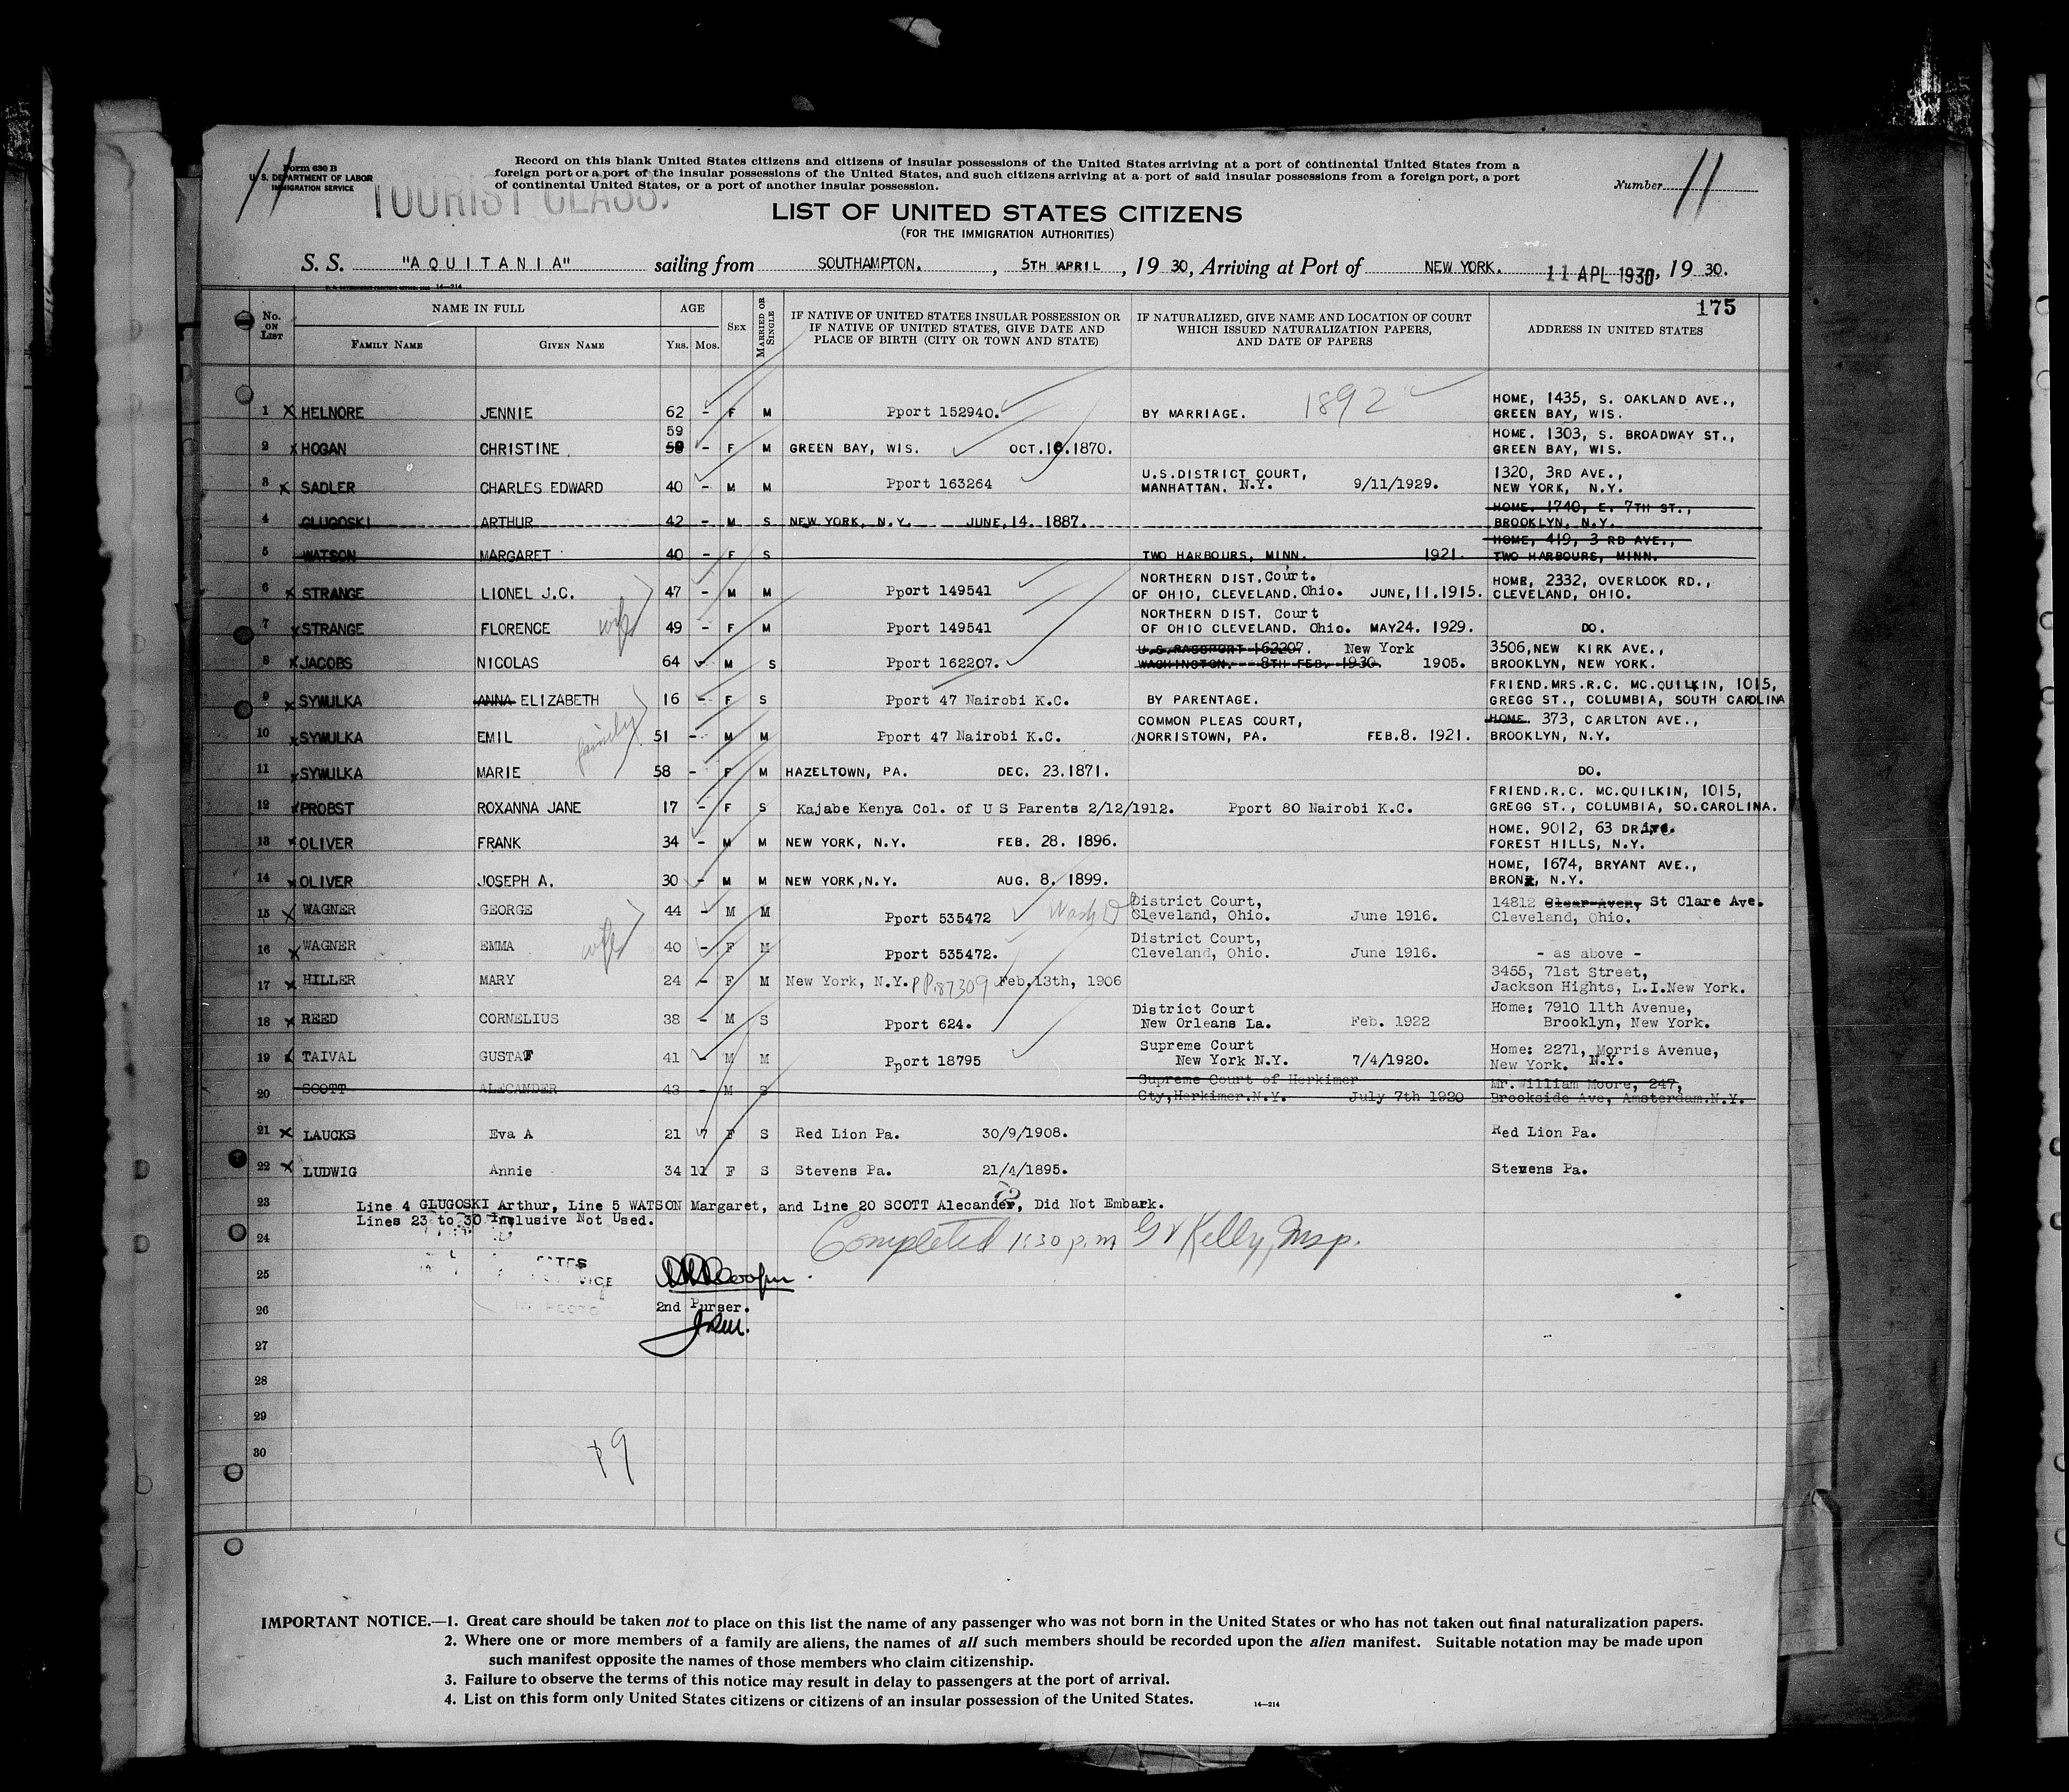 11
Form 630 B
U. S. DEPARTMENT OF LABOR
IMMIGRATION SERVICE
TOURIST CLASS.
Record on this blank United States citizens and citizens of insular possessions of the United States arriving at a port of continental United States from a
foreign port or a port of the insular possessions of the United States, and such citizens arriving at a port of said insular possessions from a foreign port, a port
of continental United States, or a port of another insular possession.
Number 11
LIST OF UNITED STATES CITIZENS
(FOR THE IMMIGRATION AUTHORITIES)
S. S. "AQUITANIA" sailing from SOUTHAMPTON. , 5TH APRIL , 19 30, Arriving at Port of NEW YORK. 11 APL 1930, 19 30.
175
No. ON LIST NAME IN FULL FAMILY NAME GIVEN NAME AGE YRS. MOS. SEX MARRIED OR SINGLE IF NATIVE OF UNITED STATES INSULAR POSSESSION OR IF NATIVE OF UNITED STATES, GIVE DATE AND PLACE OF BIRTH (CITY OR TOWN AND STATE) IF NATURALIZED, GIVE NAME AND LOCATION OF COURT WHICH ISSUED NATURALIZATION PAPERS, AND DATE OF PAPERS ADDRESS IN UNITED STATES
1 X HELNORE JENNIE 62 - F M Pport 152940. BY MARRIAGE. 1892 HOME, 1435, S. OAKLAND AVE., GREEN BAY, WIS.
59
2 X HOGAN CHRISTINE 58 - F M GREEN BAY, WIS. OCT.16.1870. HOME. 1303, S. BROADWAY ST., GREEN BAY, WIS.
3 X SADLER CHARLES EDWARD 40 - M M Pport 163264 U.S.DISTRICT COURT, MANHATTAN. N.Y. 9/11/1929. 1320, 3RD AVE., NEW YORK, N.Y.
4 GLUGOSKI ARTHUR 42 - M S NEW YORK, N.Y. JUNE,14. 1887. HOME. 1740, E. 7TH ST., BROOKLYN, N.Y.
5 WATSON MARGARET 40 - F S TWO HARBOURS, MINN. 1921. HOME, 419, 3 RD AVE., TWO HARBOURS, MINN.
6 X STRANGE LIONEL J.C. 47 - M M Pport 149541 NORTHERN DIST. Court. OF OHIO, CLEVELAND. Ohio. JUNE,11.1915. HOME, 2332, OVERLOOK RD., CLEVELAND, OHIO.
7 X STRANGE FLORENCE wife 49 - F M Pport 149541 NORTHERN DIST. Court OF OHIO CLEVELAND. Ohio. MAY24. 1929. DO.
8 X JACOBS NICOLAS 64 - M S Pport 162207. U.S.PASSPORT 162207. New York WASHINGTON. 8TH FEB. 1930. 1905. 3506,NEW KIRK AVE., BROOKLYN, NEW YORK.
9 X SYWULKA ANNA ELIZABETH 16 - F S Pport 47 Nairobi K.C. BY PARENTAGE. FRIEND.MRS.R.C. MC.QUILKIN, 1015, GREGG ST., COLUMBIA, SOUTH CAROLINA
10 X SYWULKA EMIL family 51 - M M Pport 47 Nairobi K.C. COMMON PLEAS COURT, NORRISTOWN, PA. FEB.8. 1921. HOME. 373, CARLTON AVE., BROOKLYN, N.Y.
11 X SYWULKA MARIE 58 - F M HAZELTOWN, PA. DEC. 23.1871. DO.
12 X PROBST ROXANNA JANE 17 - F S Kajabe Kenya Col. of U S Parents 2/12/1912. Pport 80 Nairobi K.C. FRIEND.R.C. MC.QUILKIN, 1015, GREGG ST., COLUMBIA, SO.CAROLINA.
13 X OLIVER FRANK 34 - M M NEW YORK, N.Y. FEB. 28. 1896. HOME. 9012, 63 DRive. FOREST HILLS, N.Y.
14 X OLIVER JOSEPH A. 30 - M M NEW YORK,N.Y. AUG. 8. 1899. HOME, 1674, BRYANT AVE., BRONX, N.Y.
15 X WAGNER GEORGE 44 - M M Pport 535472 Wash D District Court, Cleveland, Ohio. June 1916. 14812 Clear Aven, St Clare Ave. Cleveland, Ohio.
16 X WAGNER EMMA wife 40 - F M Pport 535472. District Court, Cleveland, Ohio. June 1916. - as above -
17 X HILLER MARY 24 - F M New York, N.Y. PP.87309 Feb.13th, 1906 3455, 71st Street, Jackson Hights, L.I.New York.
18 X REED CORNELIUS 38 - M S Pport 624. District Court New Orleans La. Feb. 1922 Home: 7910 11th Avenue, Brooklyn, New York.
19 X TAIVAL GUSTAF 41 - M M Pport 18795 Supreme Court New York N.Y. 7/4/1920. Home: 2271, Morris Avenue, New York. N.Y.
20 SCOTT ALECANDER 43 - M S Supreme Court of Herkimer Cty,Herkimer.N.Y. July 7th 1920 Mr.William Moore, 247, Brookside Ave, Amsterdam.N.Y.
21 X LAUCKS Eva A 21 7 F S Red Lion Pa. 30/9/1908. Red Lion Pa.
22 X LUDWIG Annie 34 11 F S Stevens Pa. 21/4/1895. Stevens Pa.
72
23 Line 4 GLUGOSKI Arthur, Line 5 WATSON Margaret, and Line 20 SCOTT Alecander, Did Not Embark.
Lines 23 to 30 Inclusive Not Used.
24 Completed 1:30 p.m G V Kelly, Insp.
25
26 2nd Purser.
27
28
29
30
19
IMPORTANT NOTICE.—1. Great care should be taken not to place on this list the name of any passenger who was not born in the United States or who has not taken out final naturalization papers.
2. Where one or more members of a family are aliens, the names of all such members should be recorded upon the alien manifest. Suitable notation may be made upon
such manifest opposite the names of those members who claim citizenship.
3. Failure to observe the terms of this notice may result in delay to passengers at the port of arrival.
4. List on this form only United States citizens or citizens of an insular possession of the United States.
14—214